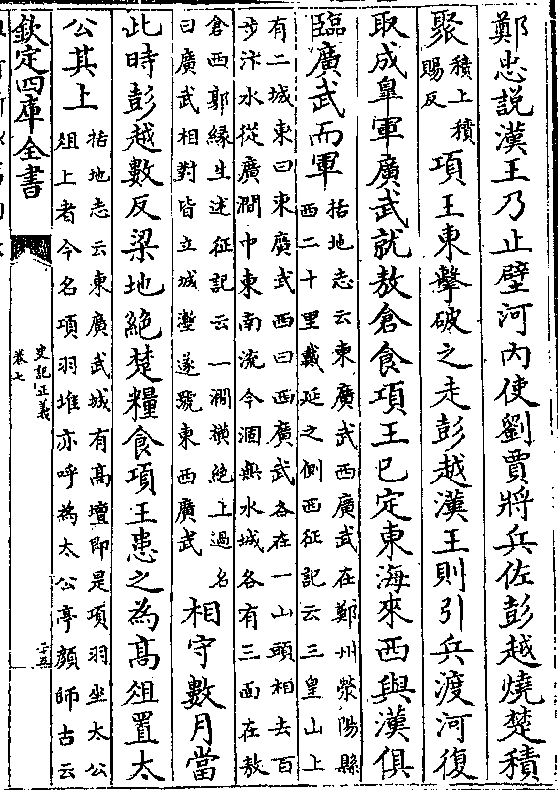 鄭忠說漢王乃止壁河內使劉賈將兵佐彭越燒楚積
聚積上積賜反項王東擊破之走彭越漢王則引兵渡河復
取成臯軍廣武就敖倉食項王已定東海來西與漢俱
臨廣武而軍括地志云東廣武西廣武在鄭州滎陽縣西二十里戴延之側西征記云三皇山上
有二城東曰東廣武西曰西廣武各在一山頭相去百
步汴水從廣澗中東南流今涸無水城各有三面在敖
倉西郭緣生述征記云一澗橫絶上過名
曰廣武相對皆立城壍遂號東西廣武相守數月當
此時彭越數反梁地絶楚糧食項王患之為髙俎置太
公其上括地志云東廣武城有髙壇即是項羽坐太公俎上者今名項羽堆亦呼為太公亭顔師古云
欽定四庫全書
史記正義
卷七